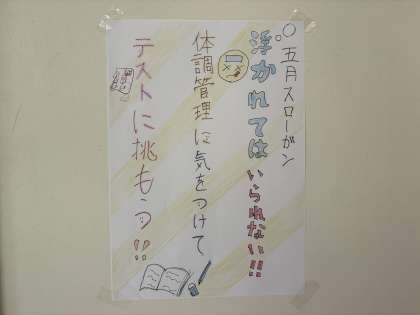 五月スローガン
浮かれてはいられない!!
体調管理に気をつけて
テストに挑もう!!